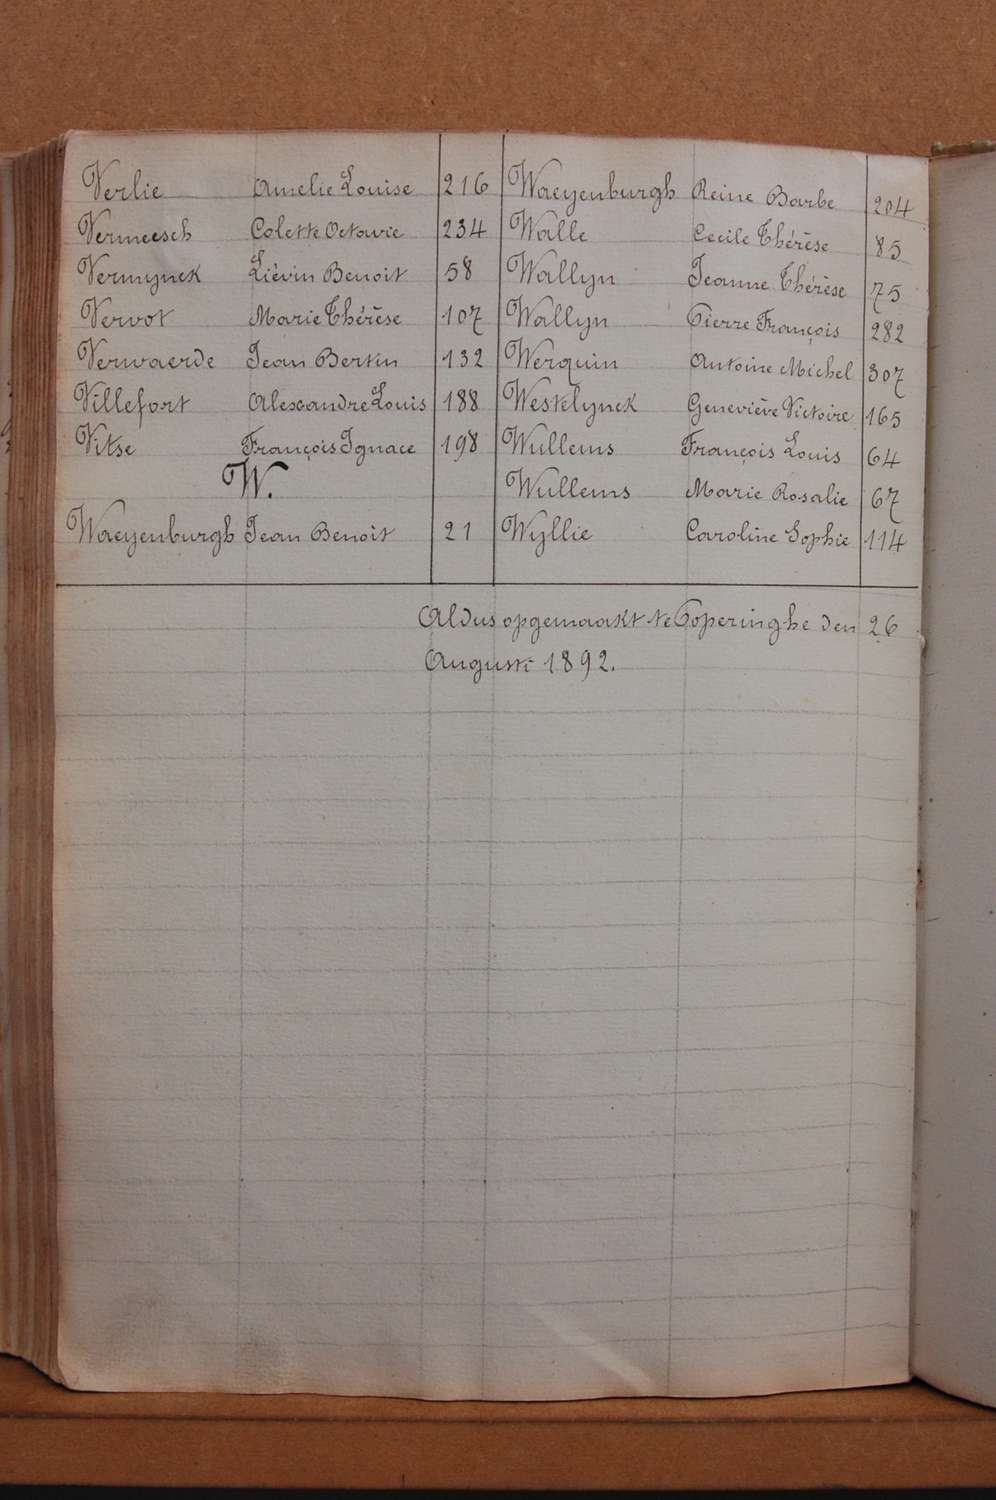 Verlie Amelie Louise 216
Vermeesch Colette Octavie 234
Vermynck Liévin Benoit 58
Vervot Marie Thérèse 107
Verwaerde Jean Bertin 132
Villefort Alexandre Louis 188
Vitse François Ignace 198
W.
Waeyenburgh Jean Benoit 21
Waeyenburgh Reine Barbe 204
Walle Cecile Thérèse 85
Wallyn Jeanne Thérèse 75
Wallyn Pierre François 282
Werquin Antoine Michel 307
Westelynck Geneviève Victoire 165
Wullems François Louis 64
Wullems Marie Rosalie 67
Wyllie Caroline Sophie 114
Aldus opgemaakt te Poperinghe den 26
Augusti 1892.